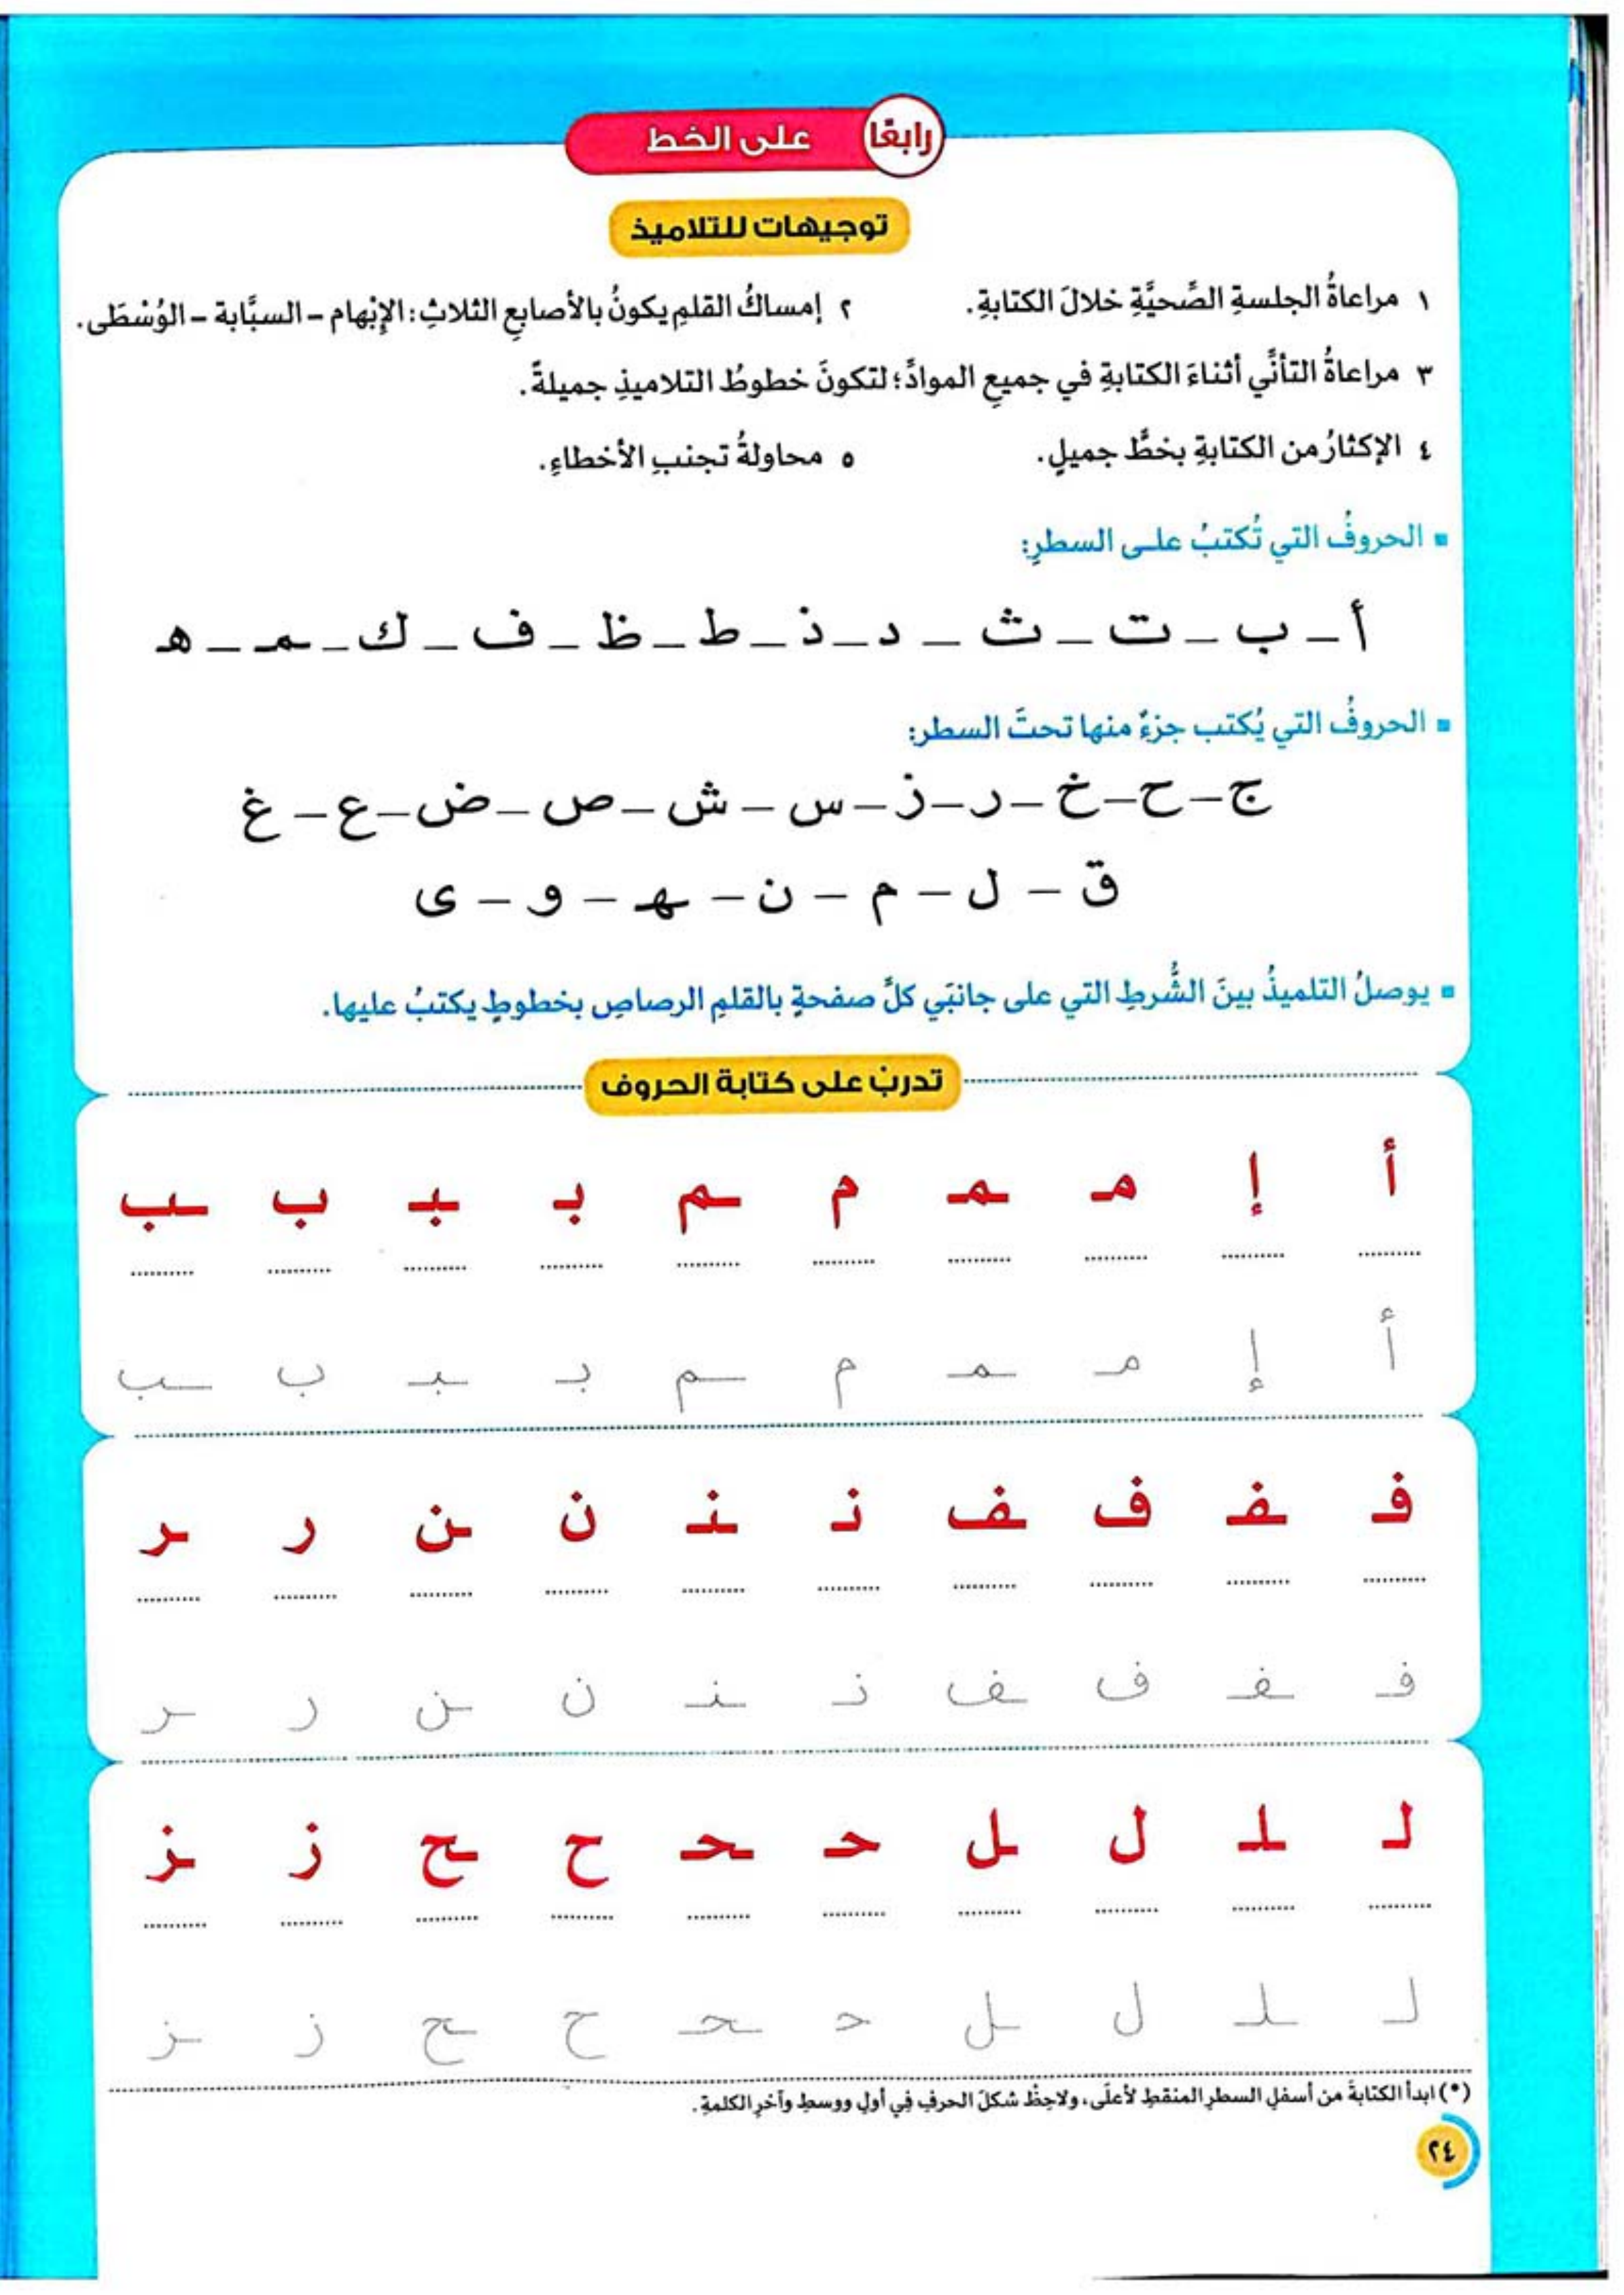 رابعًا على الخط
توجيهات للتلاميذ
١ مراعاةُ الجلسةِ الصِّحيَّةِ خلالَ الكتابةِ. ٢ إمساكُ القلمِ يكونُ بالأصابعِ الثلاثِ: الإبْهام – السبَّابة – الوُسْطَى.
٣ مراعاةُ التأنِّي أثناءَ الكتابةِ في جميعِ الموادِّ؛ لتكونَ خطوطُ التلاميذِ جميلةً.
٤ الإكثارُ من الكتابةِ بخطٍّ جميلٍ. ٥ محاولةُ تجنبِ الأخطاءِ.
▪ الحروفُ التي تُكتبُ على السطرِ:
أ – ب – ت – ث – د – ذ – ط – ظ – ف – ك – مـ – هـ
▪ الحروفُ التي يُكتب جزءٌ منها تحتَ السطر:
ج – ح – خ – ر – ز – س – ش – ص – ض – ع – غ
ق – ل – م – ن – ـهـ – و – ى
▪ يوصلُ التلميذُ بينَ الشُّرطِ التي على جانبَي كلِّ صفحةٍ بالقلمِ الرصاصِ بخطوطٍ يكتبُ عليها.
تدربْ على كتابة الحروف
أ إ مـ ـمـ م ـم بـ ـبـ ب ـب
أ إ مـ ـمـ م ـم بـ ـبـ ب ـب
فـ ـفـ ف ـف نـ ـنـ ن ـن ر ـر
فـ ـفـ ف ـف نـ ـنـ ن ـن ر ـر
لـ ـلـ ل ـل حـ ـحـ ح ـح ز ـز
لـ ـلـ ل ـل حـ ـحـ ح ـح ز ـز
(*) ابدأ الكتابةَ من أسفلِ السطرِ المنقطِ لأعلَى، ولاحِظْ شكلَ الحرفِ فِي أولِ ووسطِ وآخرِ الكلمةِ.
٢٤